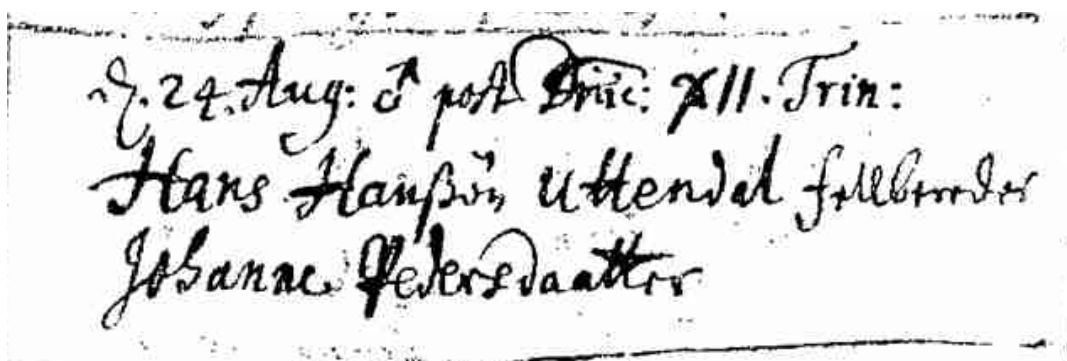 d. 24. Aug: ♂ post Dnic: XII. Trin:
Hans Hanßøn Uttendal fellbereder
Johanne Pedersdaatter